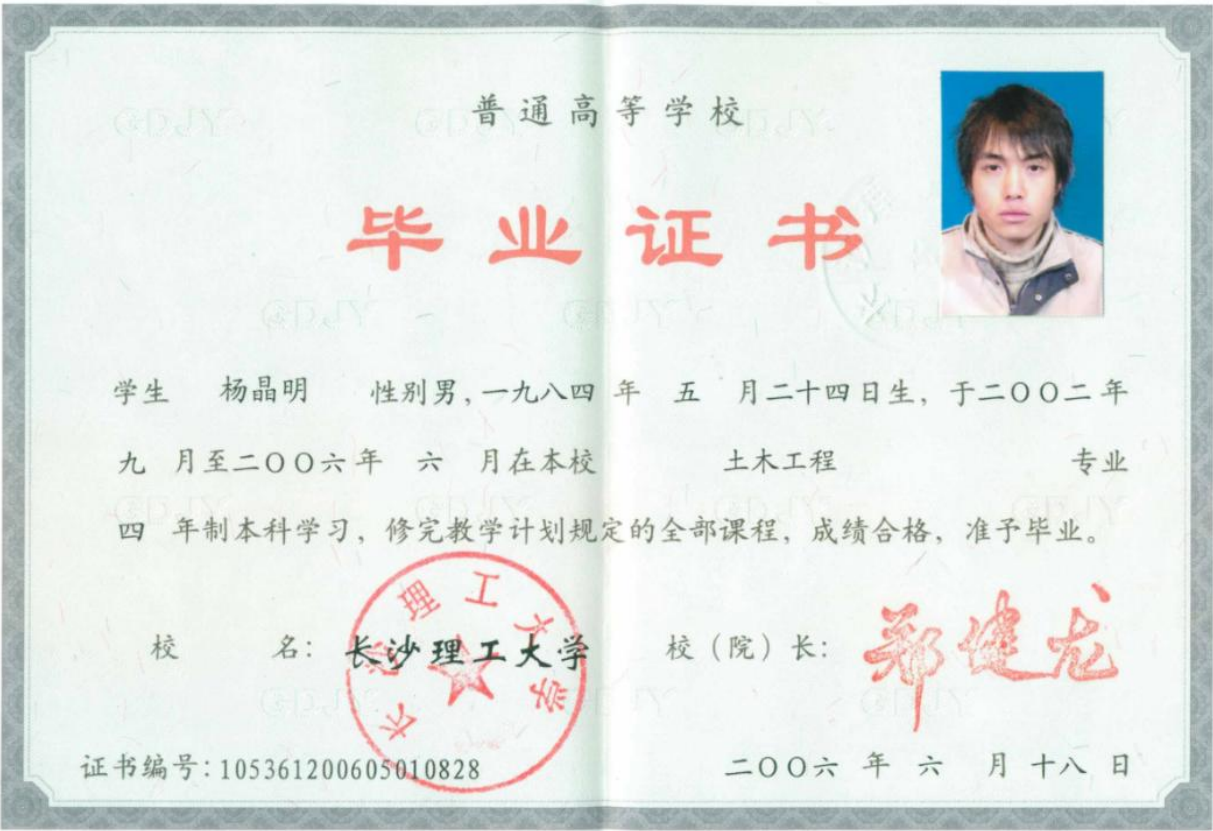 普通高等学校
毕业证书
学生 杨晶明 性别男，一九八四 年 五 月二十四日生，于二〇〇二年
九 月至二〇〇六年 六 月在本校 土木工程 专业
四 年制本科学习，修完教学计划规定的全部课程，成绩合格，准予毕业。
校 名：长沙理工大学 校（院）长：郑健龙
长沙理工大学
证书编号：105361200605010828 二〇〇六 年 六 月 十八 日